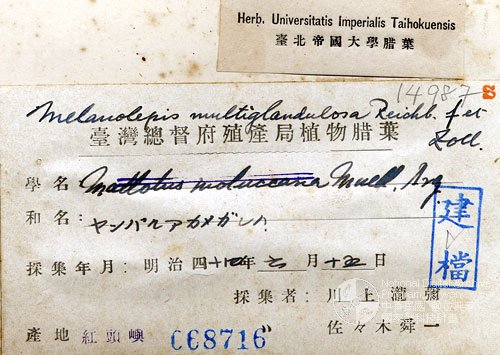 Herb. Universitatis Imperialis Taihokuensis
臺北帝國大學腊葉
14987 S
Melanolepis multiglandulosa Reichb. f et Zoll.
臺灣總督府殖產局植物腊葉
學名: Mallotus moluccana Muell. Arg.
和名: ヤンバルアカメガシハ
建檔
採集年月: 明治四十 年 月十 日
採集者: 川上瀧彌
佐々木舜一
產地 紅頭嶼
068716